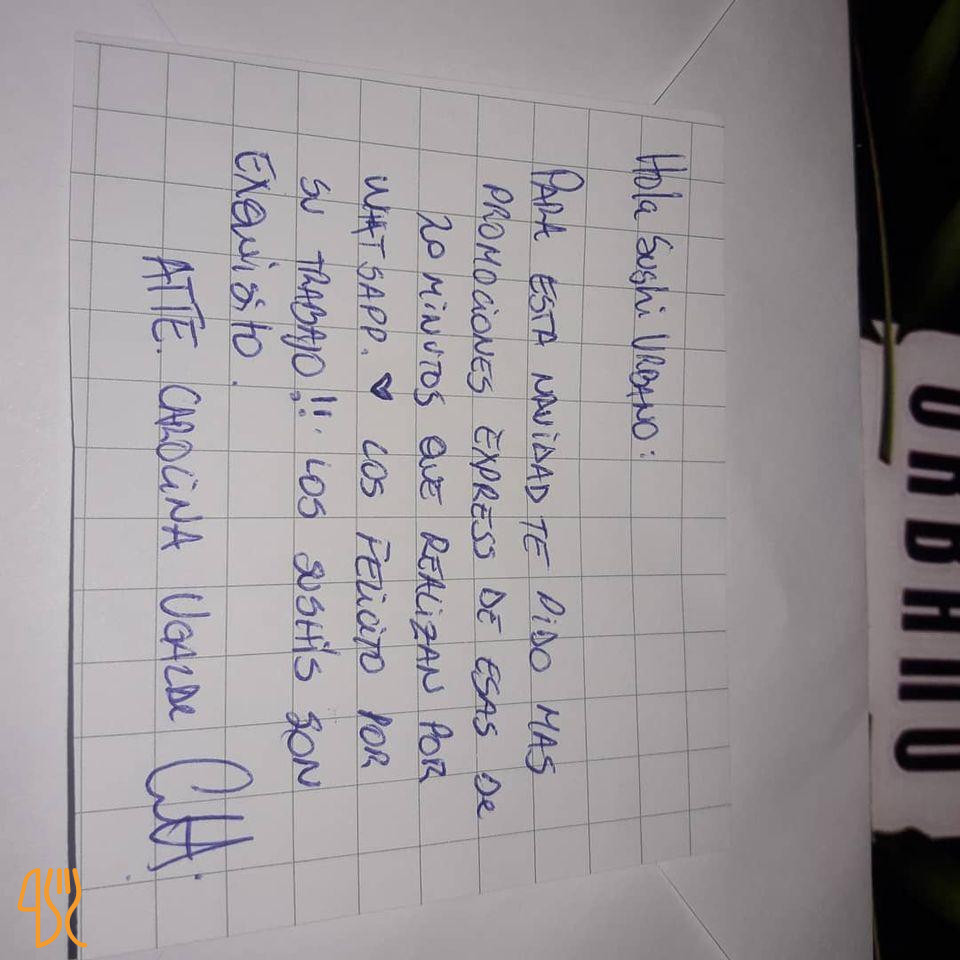 Hola Sushi Urbano:
PARA ESTA NAVIDAD TE PIDO MAS
PROMOCIONES EXPRESS DE ESAS De
20 MINUTOS QUE REALIZAN POR
WHATSAPP. ♥ LOS FELICITO POR
SU TRABAJO!!. LOS SUSHIS SON
Exquisito.
ATTE. CAROLINA UGALDE
URBANO